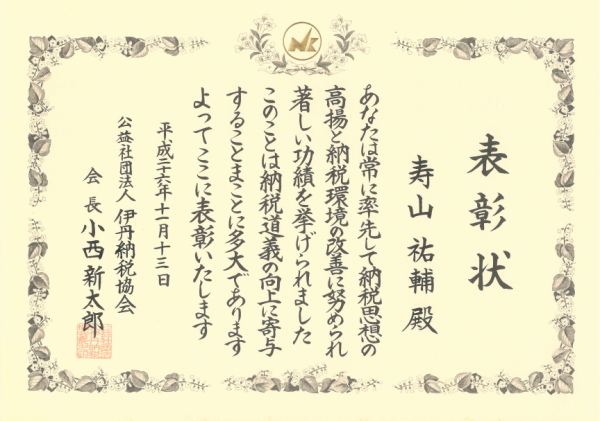 表彰状
寿山祐輔殿
あなたは常に率先して納税思想の
高揚と納税環境の改善に努められ
著しい功績を挙げられました
このことは納税道義の向上に寄与
することまことに多大であります
よってここに表彰いたします
平成二十六年十一月十三日
公益社団法人 伊丹納税協会
会長 小西新太郎